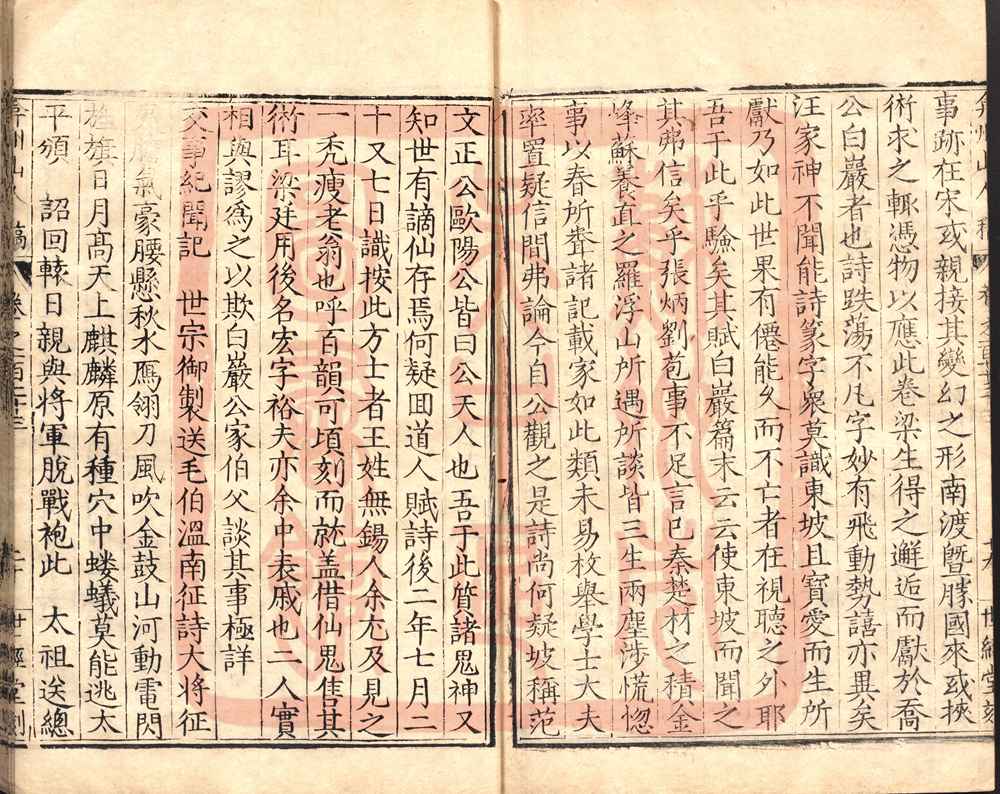 事跡在宋或親接其變幻之形南渡曁勝國來或挾
術求之輒憑物以應此卷梁生得之邂逅而獻於喬
公白巖者也詩跌蕩不凡字妙有飛動勢譆亦異矣
汪家神不聞能詩篆字衆莫識東坡且寶愛而生所
獻乃如此世果有僊能久而不亡者在視聽之外耶
吾于此乎驗矣其賦白巖篇末云云使東坡而聞之
其弗信矣乎張炳劉苞事不足言已秦楚材之積金
峰蘇養直之羅浮山所遇所談皆三生兩塵涉慌惚
事以春所聱諸記載家如此類未易枚舉學士大夫
率置疑信間弗論今自公觀之是詩尚何疑坡稱范
文正公歐陽公皆曰公天人也吾于此筫諸鬼神又
知世有謫仙存焉何疑囬道人賦詩後二年七月二
十又七日識按此方士者王姓無錫人余尢及見之
一禿瘦老翁也呼百韻可頃刻而就盖借仙鬼售其
術耳梁廷用後名宏字裕夫亦余中表戚也二人實
相與謬爲之以欺白巖公家伯父談其事極詳
交事紀聞記　世宗御製送毛伯溫南征詩大将征
氣豪腰懸秋水鴈翎刀風吹金鼓山河動電閃
旌旗日月髙天上麒麟原有種穴中螻蟻莫能逃太
平頒　詔回轅日親與將軍脫戰袍此　太祖送總
山人稿　卷之百
世經堂刻